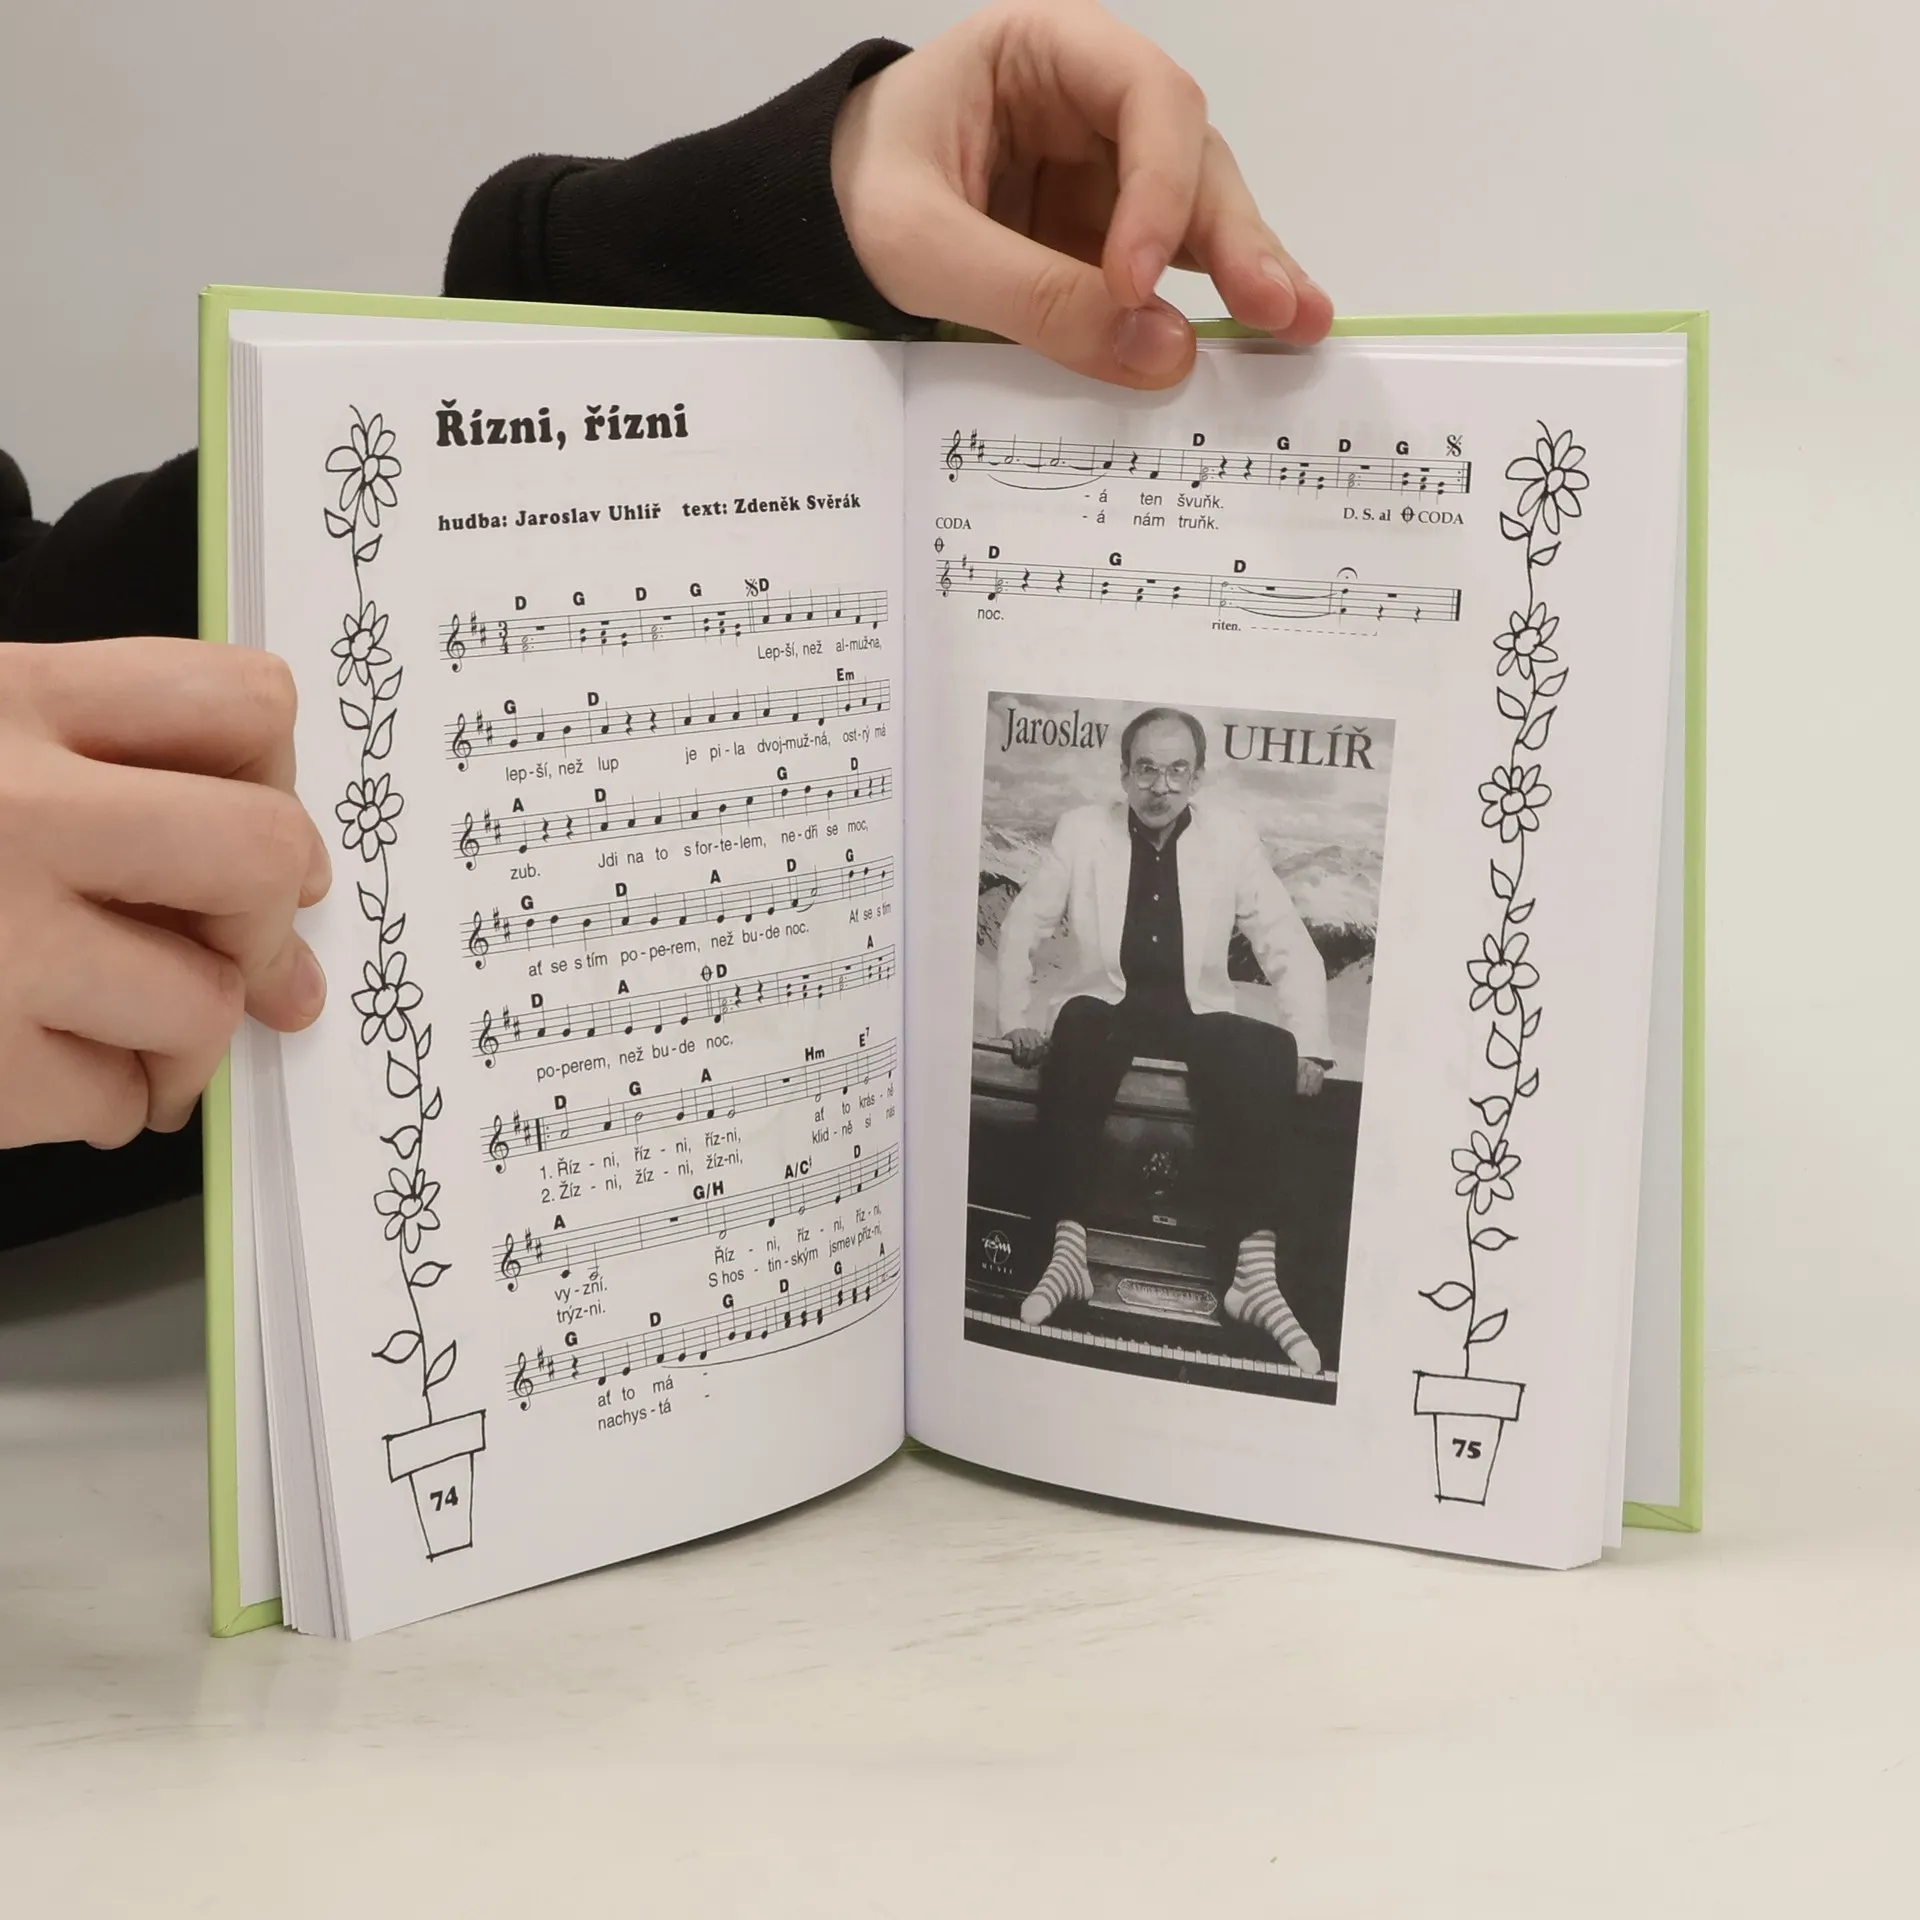 Řízni, řízni
hudba: Jaroslav Uhlíř text: Zdeněk Svěrák
D G D G D
3
4
Lep-ší, než al-muž-na,
G D Em
lep-ší, než lup je pi-la dvoj-muž-ná, ost-rý má
A D G D
zub. Jdi na to s for-te-lem, ne-dři se moc,
G D A D G
ať se s tím po-pe-rem, než bu-de noc. Ať se s tím
D A D A
po-perem, než bu-de noc.
D G A Hm E7
1. Říz - ni, říz - ni, říz-ni, ať to krás - ně
2. Žíz - ni, žíz - ni, žíz-ni, klid - ně si nás
A G/H A/C# D
vy - zní. Říz - ni, říz - ni, říz-ni,
trýz-ni. S hos - tin-ským jsme v příz-ni,
G D G D G A
ať to má -
nachys - tá -
74
D G D G
- á ten švuňk.
- á nám truňk.
D. S. al CODA
CODA
D G D
noc.
riten.
Jaroslav UHLÍŘ
75